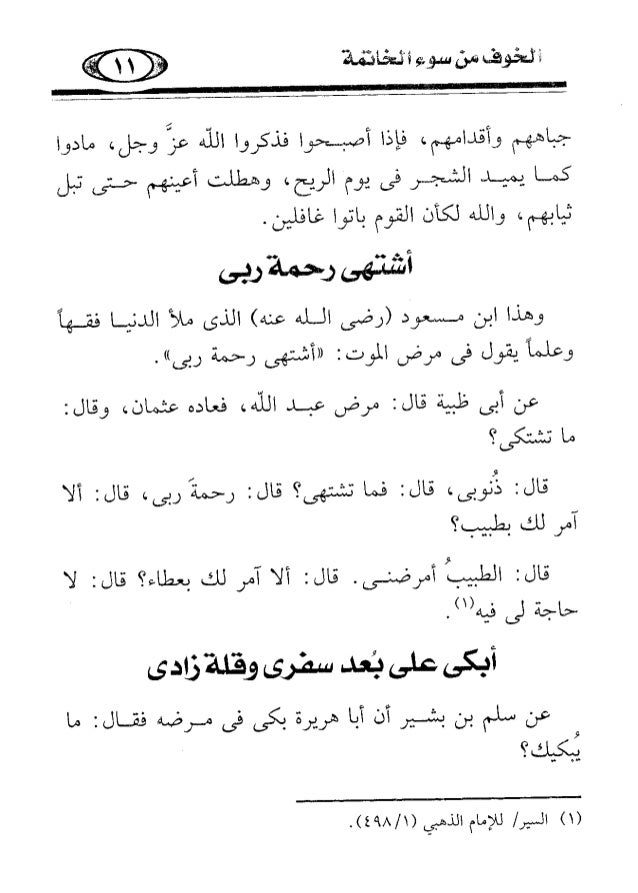 الخوف من سوء الخاتمة
١١
جباههم وأقدامهم، فإذا أصبحوا فذكروا الله عزَّ وجل، مادوا
كما يميد الشجر فى يوم الريح، وهطلت أعينهم حتى تبل
ثيابهم، والله لكأن القوم باتوا غافلين.
أشتهى رحمة ربى
وهذا ابن مسعود (رضى الله عنه) الذى ملأ الدنيا فقهاً
وعلماً يقول فى مرض الموت: «أشتهى رحمة ربى».
عن أبى ظبية قال: مرض عبد الله، فعاده عثمان، وقال:
ما تشتكى؟
قال: ذُنوبى، قال: فما تشتهى؟ قال: رحمةَ ربى، قال: ألا
آمر لك بطبيب؟
قال: الطبيبُ أمرضنى. قال: ألا آمر لك بعطاء؟ قال: لا
حاجة لى فيه(١).
أبكى على بُعد سفرى وقلة زادى
عن سلم بن بشير أن أبا هريرة بكى فى مرضه فقال: ما
يُبكيك؟
(١) السير/ للإمام الذهبي (٤٩٨/١).